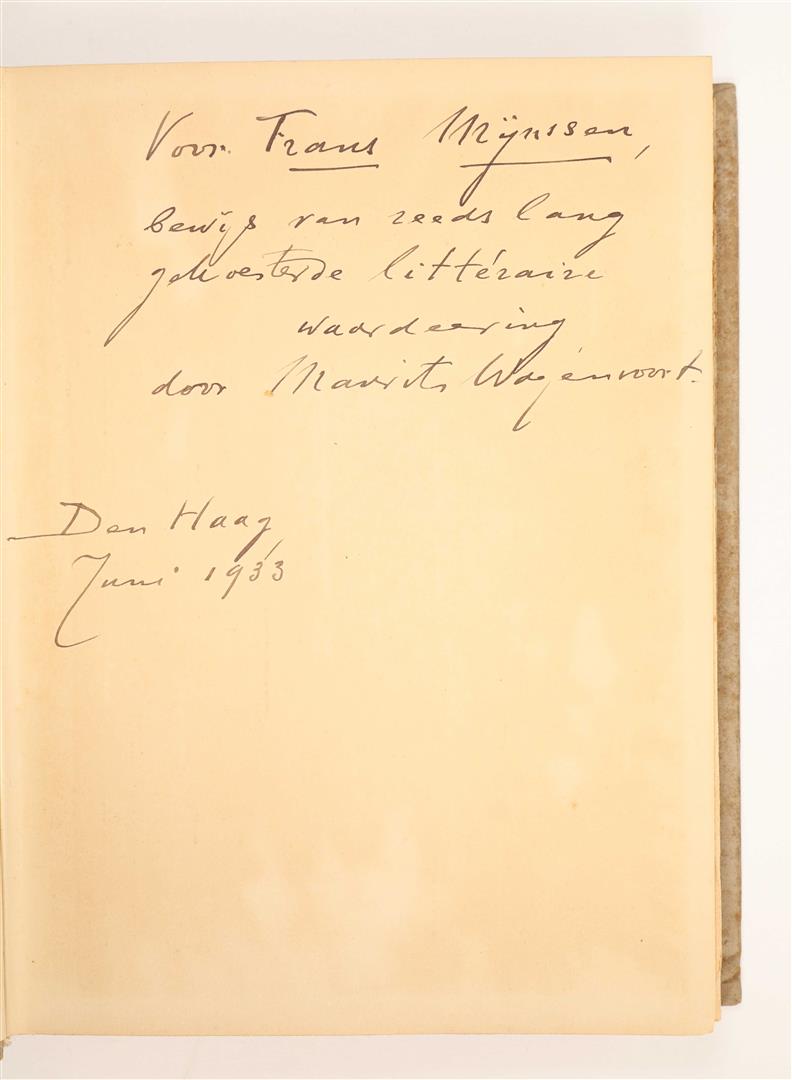 Voor Frans Mijnssen,
bewijs van reeds lang
gekoesterde littéraire
waardeering
door Maurits Wagenvoort.
Den Haag,
Juni 1933